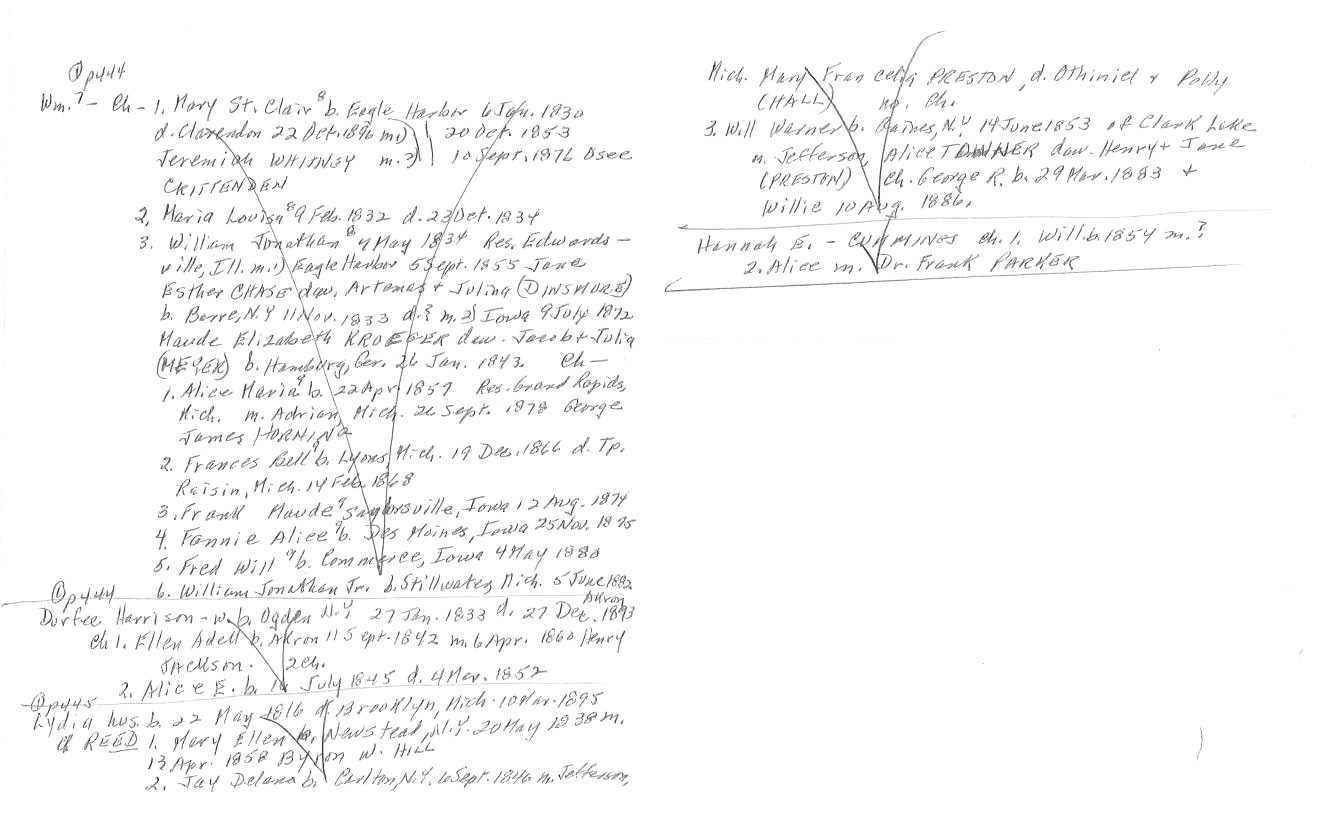 ① p444
Wm.⁷ - Ch - 1. Mary St. Clair⁸ b. Eagle Harbor 6 Jan. 1830
d. Clarendon 22 Oct. 1896 m. 1) 20 Oct. 1853
Jeremiah WHITNEY m. 2) 10 Sept. 1876 Osee
CRITTENDEN
2. Maria Louisa⁸ 9 Feb. 1832 d. 23 Oct. 1834
3. William Jonathan⁸ 9 May 1834 Res. Edwards-
ville, Ill. m. 1) Eagle Harbor 5 Sept. 1855 Jane
Esther CHASE dau. Artemas + Julina (DINSMORE)
b. Barre, N.Y 11 Nov. 1833 d. { m. 2) Iowa 9 July 1872
Maude Elizabeth KROEGER dau. Jacob + Julia
(MEYER) b. Hamburg, Ger. 26 Jan. 1843. Ch-
1. Alice Maria⁹ b. 22 Apr. 1857 Res. Grand Rapids,
Mich. m. Adrian, Mich. 26 Sept. 1878 George
James HORNING
2. Frances Bell⁹ b. Lyons, Mich. 19 Dec. 1866 d. Tp.
Raisin, Mich. 14 Feb. 1868
3. Frank Maude⁹ Saylorsville, Iowa 12 Aug. 1874
4. Fannie Alice⁹ b. Des Moines, Iowa 25 Nov. 1875
5. Fred Will⁹ b. Commerce, Iowa 4 May 1880
① p444 6. William Jonathan Jr. b. Stillwater, Mich. 5 June 1882
Durfee Harrison - w. b. Ogden N.Y 27 Jan. 1833 d. Akron 27 Dec. 1893
Ch 1. Ellen Adell b. Akron 11 Sept. 1842 m. 6 Apr. 1860 Henry
JACKSON. 2 Ch.
2. Alice E. b. July 1845 d. 4 Mar. 1852
① p445
Lydia hus. b. 22 May 1816 d. Brooklyn, Mich. 10 Mar. 1895
of REED 1. Mary Ellen b. Newstead, N.Y. 20 May 1838 m.
13 Apr. 1858 Byron W. HILL
2. Jay Delano b. Carlton, N.Y. 6 Sept. 1846 m. Jefferson,
Mich. Mary Francelia PRESTON, d. Othiniel + Polly
(HALL) no. Ch.
3. Will Warner b. Gaines, N.Y. 14 June 1853 of Clark Lake
m. Jefferson, Alice TOWNER dau. Henry + Jane
(PRESTON) Ch. George R. b. 29 Mar. 1883 +
Willie 10 Aug. 1886.
Hannah E. - CUMMINES ch. 1. Will. b. 1854 m. ?
2. Alice m. Dr. Frank PARKER